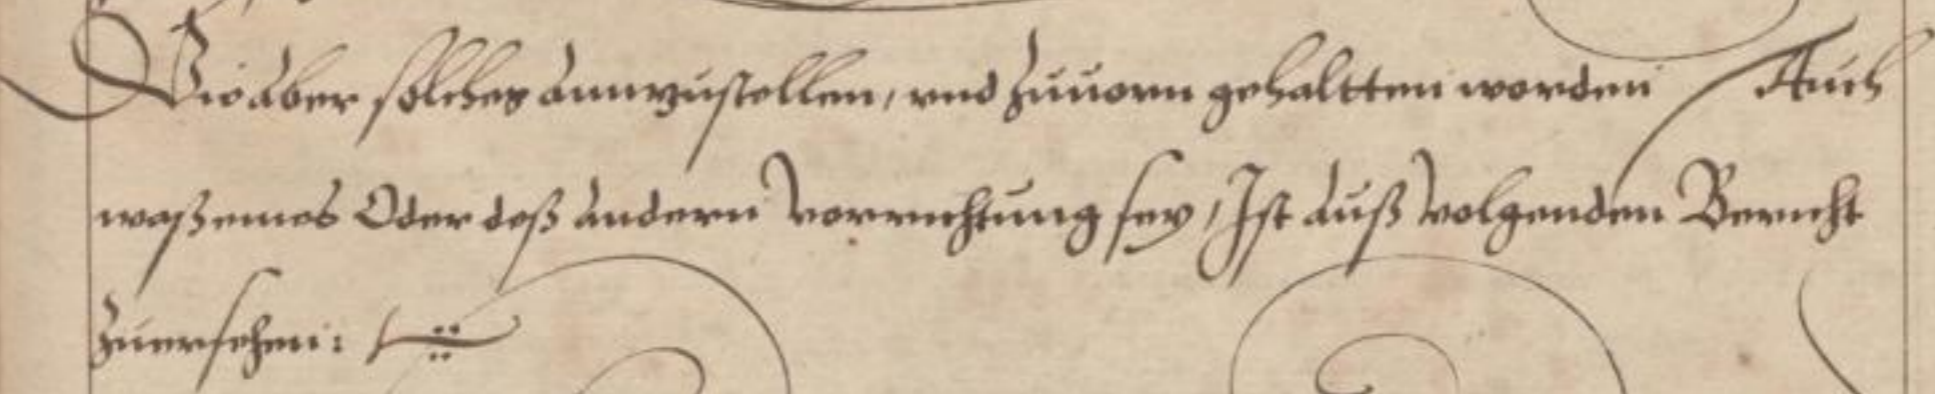 Wie aber solches Annzustellen, vnd zuuorn gehaltten worden Auch
waß eines Oder deß Andern Verrichtung sey, Ist Auß volgenden Bericht
zuersehen: